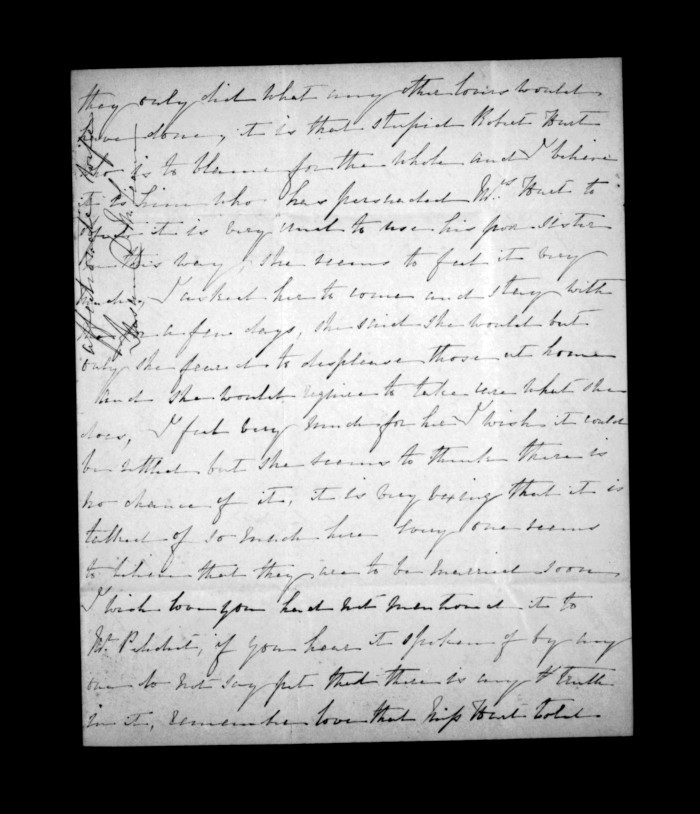 they only did what any other lovers would
have done, it is that stupid Robert Hart
who is to blame for the whole and I believe
it is him who has persuaded Mrs Hart to
it is very cruel to use his poor sister
in this way, she seems to feel it very
much, I asked her to come and stay with
me a few days, she said she would but
only she feared to displease those at home
and she would require to take care what she
does, I feel very much for her I wish it could
be settled but she seems to think there is
no chance of it, it is very vexing that it is
talked of so much here every one seems
to believe that they are to be married soon
I wish love you had not mentioned it to
Mr if you hear it spoken of by any
one do not say yet that there is any truth
in it, remember love that Miss Hart told
affectionate wife
Susan